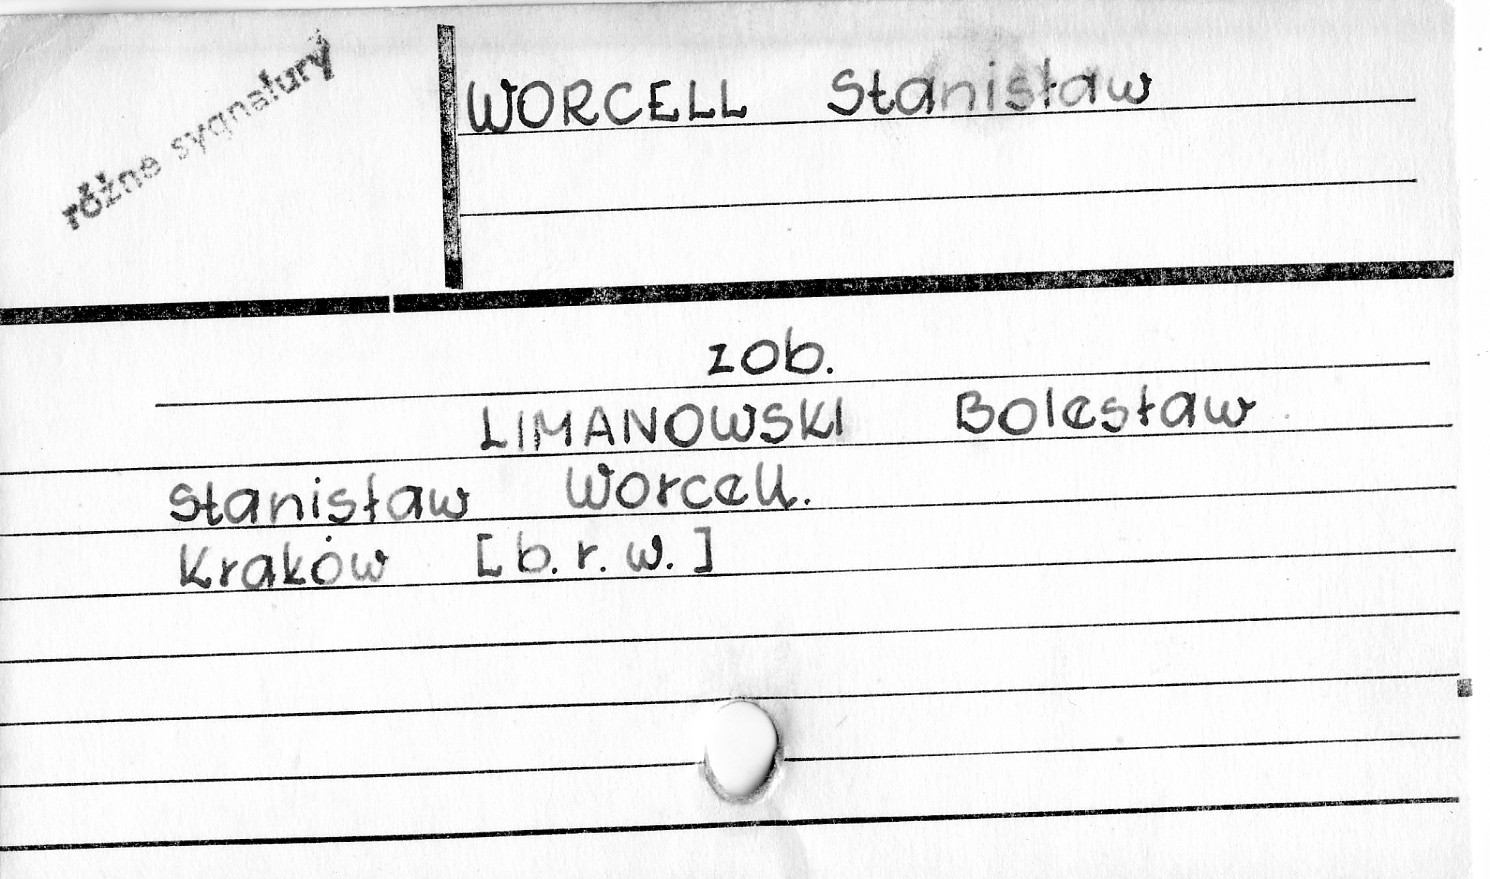 różne sygnatury
WORCELL Stanisław
zob.
LIMANOWSKI Bolesław
Stanisław Worcell.
Kraków [b.r.w.]